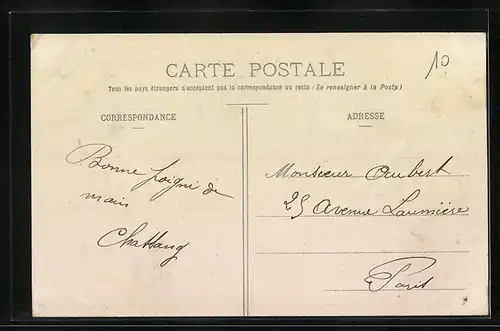 10
CARTE POSTALE
Tous les pays étrangers n'acceptent pas la correspondance au recto (Se renseigner à la Poste)
CORRESPONDANCE
ADRESSE
Bonne poigné de
main
Monsieur Aubert
25 Avenue Laumière
Paris